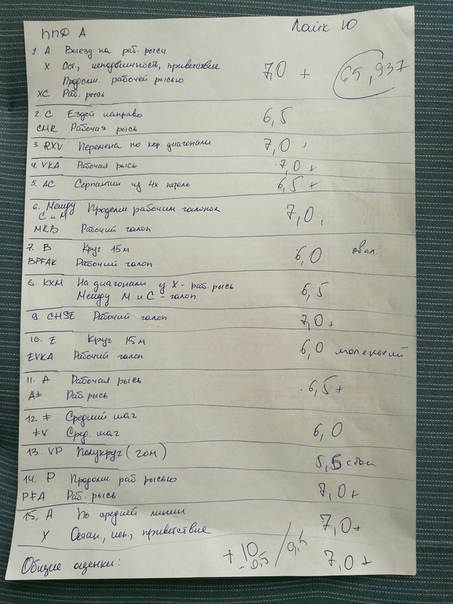 ППД А Лайк Ю
1. A Выезд на раб. рыси
X Ост, неподвижность, приветствие 7,0 + 65,937
Продолж. рабочей рысью
XC Раб. рысь
2. C Ездой направо 6,5
CMR Рабочая рысь
3. RXV Перемена по кор. диагонали 7,0 +
4. VKA Рабочая рысь 7,0 +
5. AC Серпантин из 4х петель 6,5 +
6. Между С и М Продолж рабочим галопом 7,0
MRB Рабочий галоп
7. B Круг 15м 6,0 овал
BPFAK Рабочий галоп
8. KXM На диагонали у X - раб. рысь 6,5
Между М и С - галоп
9. CHSE Рабочий галоп 7,0 +
10. E Круг 15м 6,0 маленький
EVKA Рабочий галоп
11. A Рабочая рысь 6,5 +
AF Раб рысь
12. F Средний шаг 6,0
FV Сред. шаг
13. VP Полукруг (20м) 5,5
14. P Продолж. раб рысью 7,0 +
PFA Раб. рысь
15. A По средней линии 7,0 +
Остан, неп, приветствие
Общие оценки: + 10 - 0,5 / 9,5 7,0 +